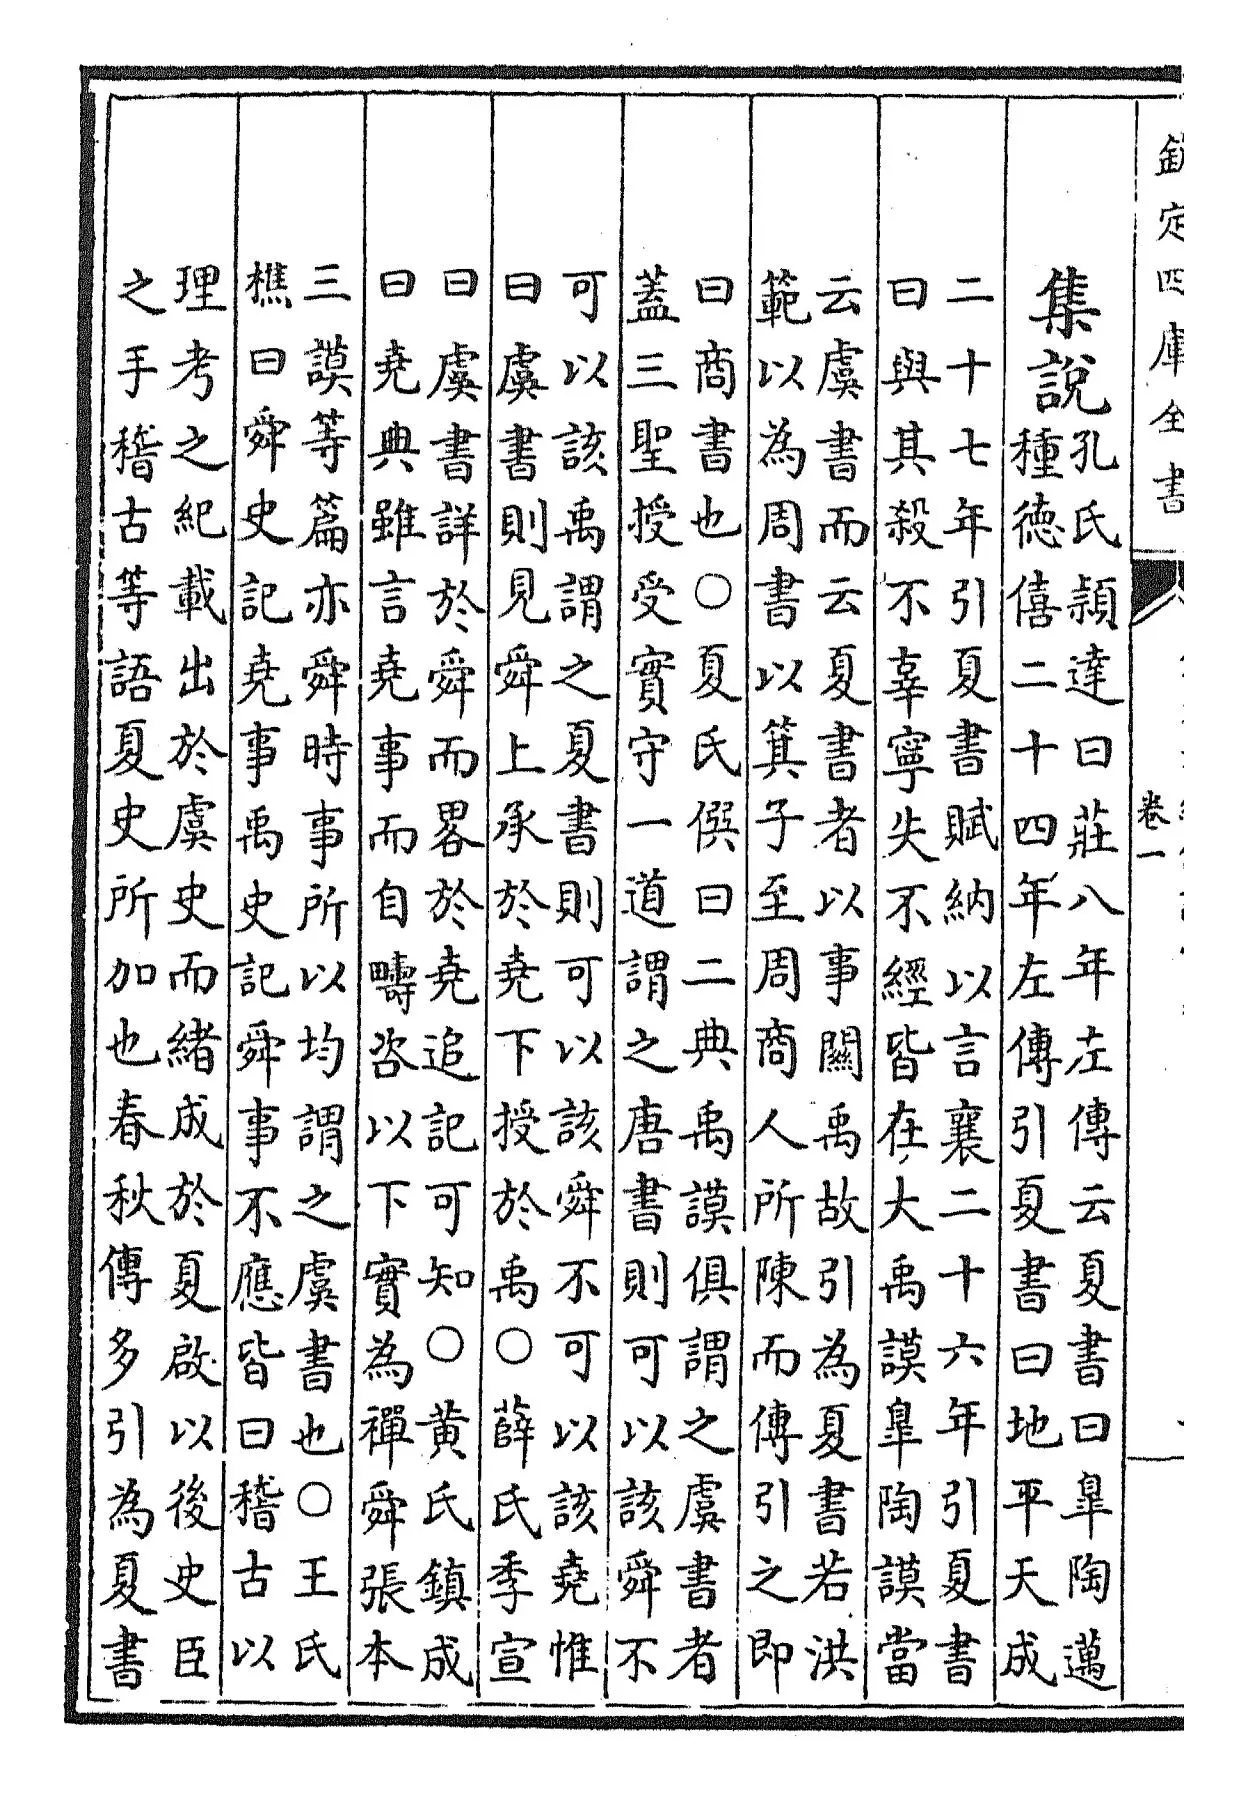 欽定四庫全書
卷一
集說
孔氏頴達曰莊八年左傳云夏書曰臯陶邁
種德僖二十四年左傳引夏書曰地平天成
二十七年引夏書賦納以言襄二十六年引夏書
曰與其殺不辜寧失不經皆在大禹謨臯陶謨當
云虞書而云夏書者以事關禹故引為夏書若洪
範以為周書以箕子至周商人所陳而傳引之即
曰商書也○夏氏僎曰二典禹謨俱謂之虞書者
蓋三聖授受實守一道謂之唐書則可以該舜不
可以該禹謂之夏書則可以該舜不可以該堯惟
曰虞書則見舜上承於堯下授於禹○薛氏季宣
曰虞書詳於舜而畧於堯追記可知○黃氏鎮成
曰堯典雖言堯事而自疇咨以下實為禪舜張本
三謨等篇亦舜時事所以均謂之虞書也○王氏
樵曰舜史記堯事禹史記舜事不應皆曰稽古以
理考之紀載出於虞史而緒成於夏啟以後史臣
之手稽古等語夏史所加也春秋傳多引為夏書